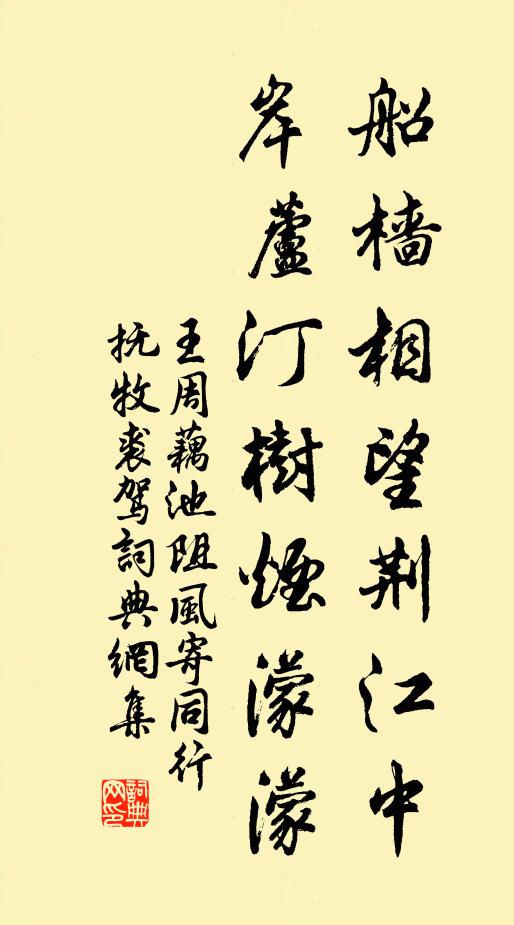 船檣相望荆江中
岸蘆汀樹煙濛濛
王周藕池阻風寄同行
抚牧裘駕詞典網集
詞典網印